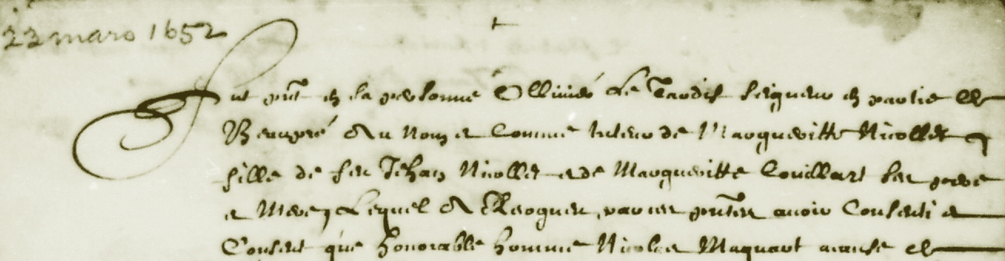 22 mars 1652
Fut pnt en sa personne Ollivier Le Tardif seigneur en partie de
Beaupré Au Nom et Comme tuteur de Margueritte Nicollet
fille de feu Jehan Nicollet et de Margueritte Couillart ses pere
et Mere, Lequel A Recognu par ces pntes avoir Consenti et
Consent que honorable homme Nicolas Maquart